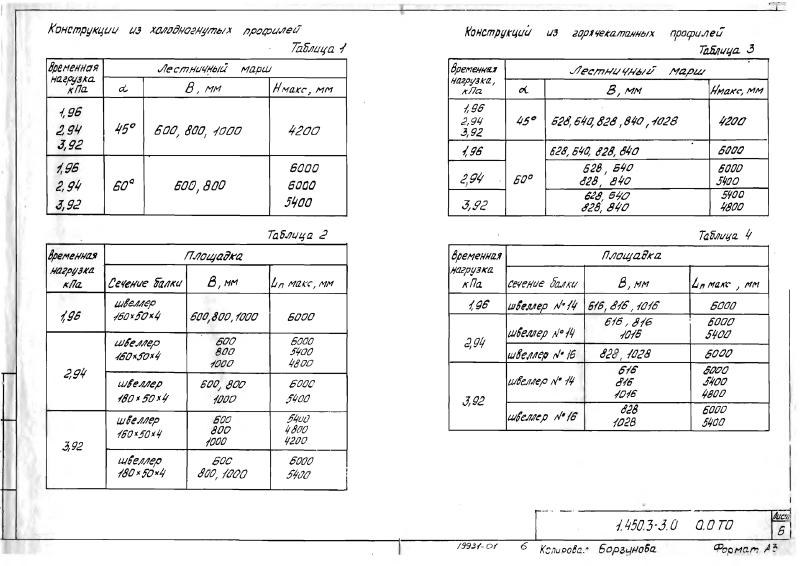 Конструкции из холодногнутых профилей
Таблица 1
Временная нагрузка кПа
Лестничный марш
α B, мм Hмакс, мм
1,96
2,94 45° 600, 800, 1000 4200
3,92
1,96 6000
2,94 60° 600, 800 6000
3,92 5400
Таблица 2
Временная нагрузка кПа
Площадка
Сечение балки B, мм Lп макс, мм
1,96 швеллер 160×50×4 600, 800, 1000 6000
2,94 швеллер 160×50×4 600 6000
800 5400
1000 4800
швеллер 180×50×4 600, 800 6000
1000 5400
3,92 швеллер 160×50×4 600 5400
800 4800
1000 4200
швеллер 180×50×4 600 6000
800, 1000 5400
Конструкции из горячекатанных профилей
Таблица 3
Временная нагрузка, кПа
Лестничный марш
α B, мм Hмакс, мм
1,96
2,94 45° 628, 640, 828, 840, 1028 4200
3,92
1,96 60° 628, 640, 828, 840 6000
2,94 628, 640 6000
828, 840 5400
3,92 628, 640 5400
828, 840 4800
Таблица 4
Временная нагрузка кПа
Площадка
сечение балки B, мм Lп макс, мм
1,96 швеллер №14 616, 816, 1016 6000
2,94 швеллер №14 616, 816 6000
1016 5400
швеллер №16 828, 1028 6000
3,92 швеллер №14 616 6000
816 5400
1016 4800
швеллер №16 828 6000
1028 5400
1.450.3-3.0 0.0 ТО
Лист
6
19931-01 6 Копировал: Борзунова Формат А3